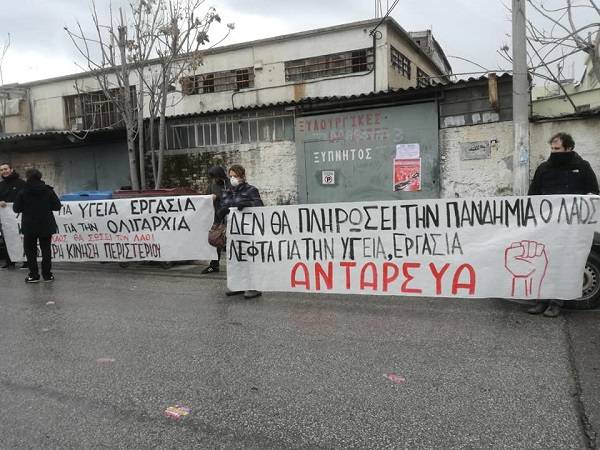 ΞΥΛΟΥΡΓΙΚΕΣ
ΞΥΠΝΗΤΟΣ
P
ΥΓΕΙΑ ΕΡΓΑΣΙΑ
ΓΙΑ ΤΗΝ ΟΛΙΓΑΡΧΙΑ
ΛΑΟΣ ΘΑ ΣΩΣΕΙ ΤΟΝ ΛΑΟ!
ΚΙΝΗΣΗ ΠΕΡΙΣΤΕΡΙΟΥ
ΔΕΝ ΘΑ ΠΛΗΡΩΣΕΙ ΤΗΝ ΠΑΝΔΗΜΙΑ Ο ΛΑΟΣ
ΛΕΦΤΑ ΓΙΑ ΤΗΝ ΥΓΕΙΑ, ΕΡΓΑΣΙΑ
ΑΝΤΑΡΣΥΑ